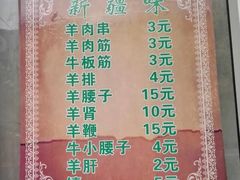 新疆味
羊肉串 3元
羊肉筋 3元
牛板筋 3元
羊排 4元
羊腰子 15元
羊肾 10元
羊鞭 15元
牛小腰子 4元
羊肝 2元
5元